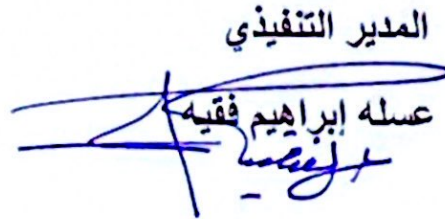 المدير التنفيذي
عسله إبراهيم فقيه